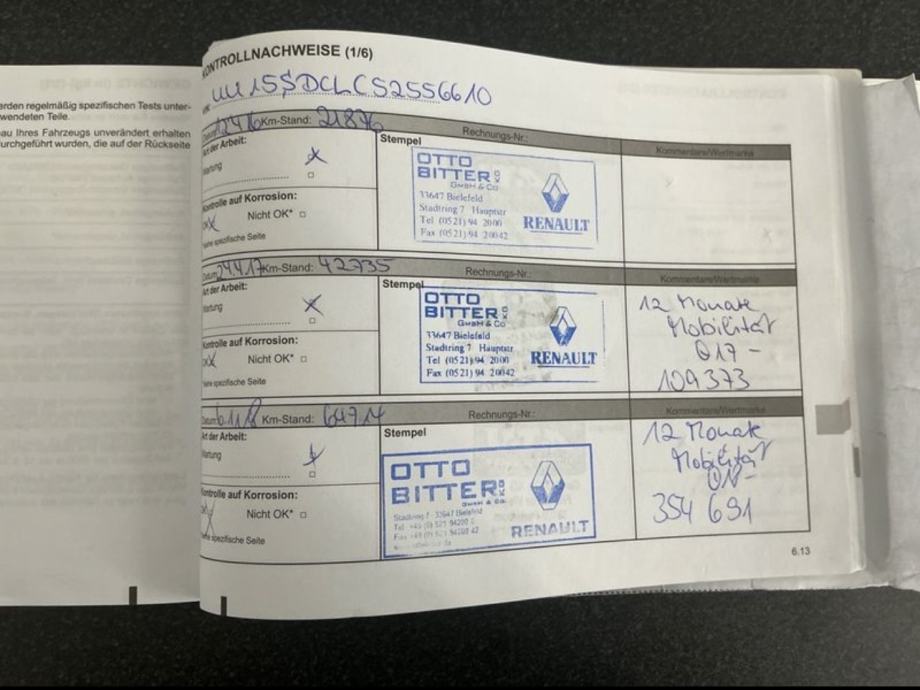 erden regelmäßig spezifischen Tests unter-
wendeten Teile.
au Ihres Fahrzeugs unverändert erhalten
urchgeführt wurden, die auf der Rückseite
ONTROLLNACHWEISE (1/6)
UU15SDCLC52556610
Km-Stand: 21876 Rechnungs-Nr.: Kommentare/Wertmarke
Art der Arbeit:
Wartung
Stempel
OTTO
BITTER
GmbH & Co KG
33647 Bielefeld
Stadtring 7 Hauptstr
Tel (0521) 94 20 00
Fax (0521) 94 200 42
RENAULT
Kontrolle auf Korrosion:
OK Nicht OK*
*siehe spezifische Seite
Datum: 24.4.17 Km-Stand: 42735 Rechnungs-Nr.: Kommentare/Wertmarke
Art der Arbeit:
Wartung
Stempel
OTTO
BITTER
GmbH & Co KG
33647 Bielefeld
Stadtring 7 Hauptstr
Tel (0521) 94 20 00
Fax (0521) 94 200 42
RENAULT
12 Monate
Mobilität
017 -
109373
Kontrolle auf Korrosion:
OK Nicht OK*
*siehe spezifische Seite
Km-Stand: 64714 Rechnungs-Nr.: Kommentare/Wertmarke
Art der Arbeit:
Wartung
Stempel
OTTO
BITTER
GmbH & Co. KG
Stadtring 7 · 33647 Bielefeld
RENAULT
12 Monate
Mobilität
354 691
Kontrolle auf Korrosion:
Nicht OK*
*siehe spezifische Seite
6.13